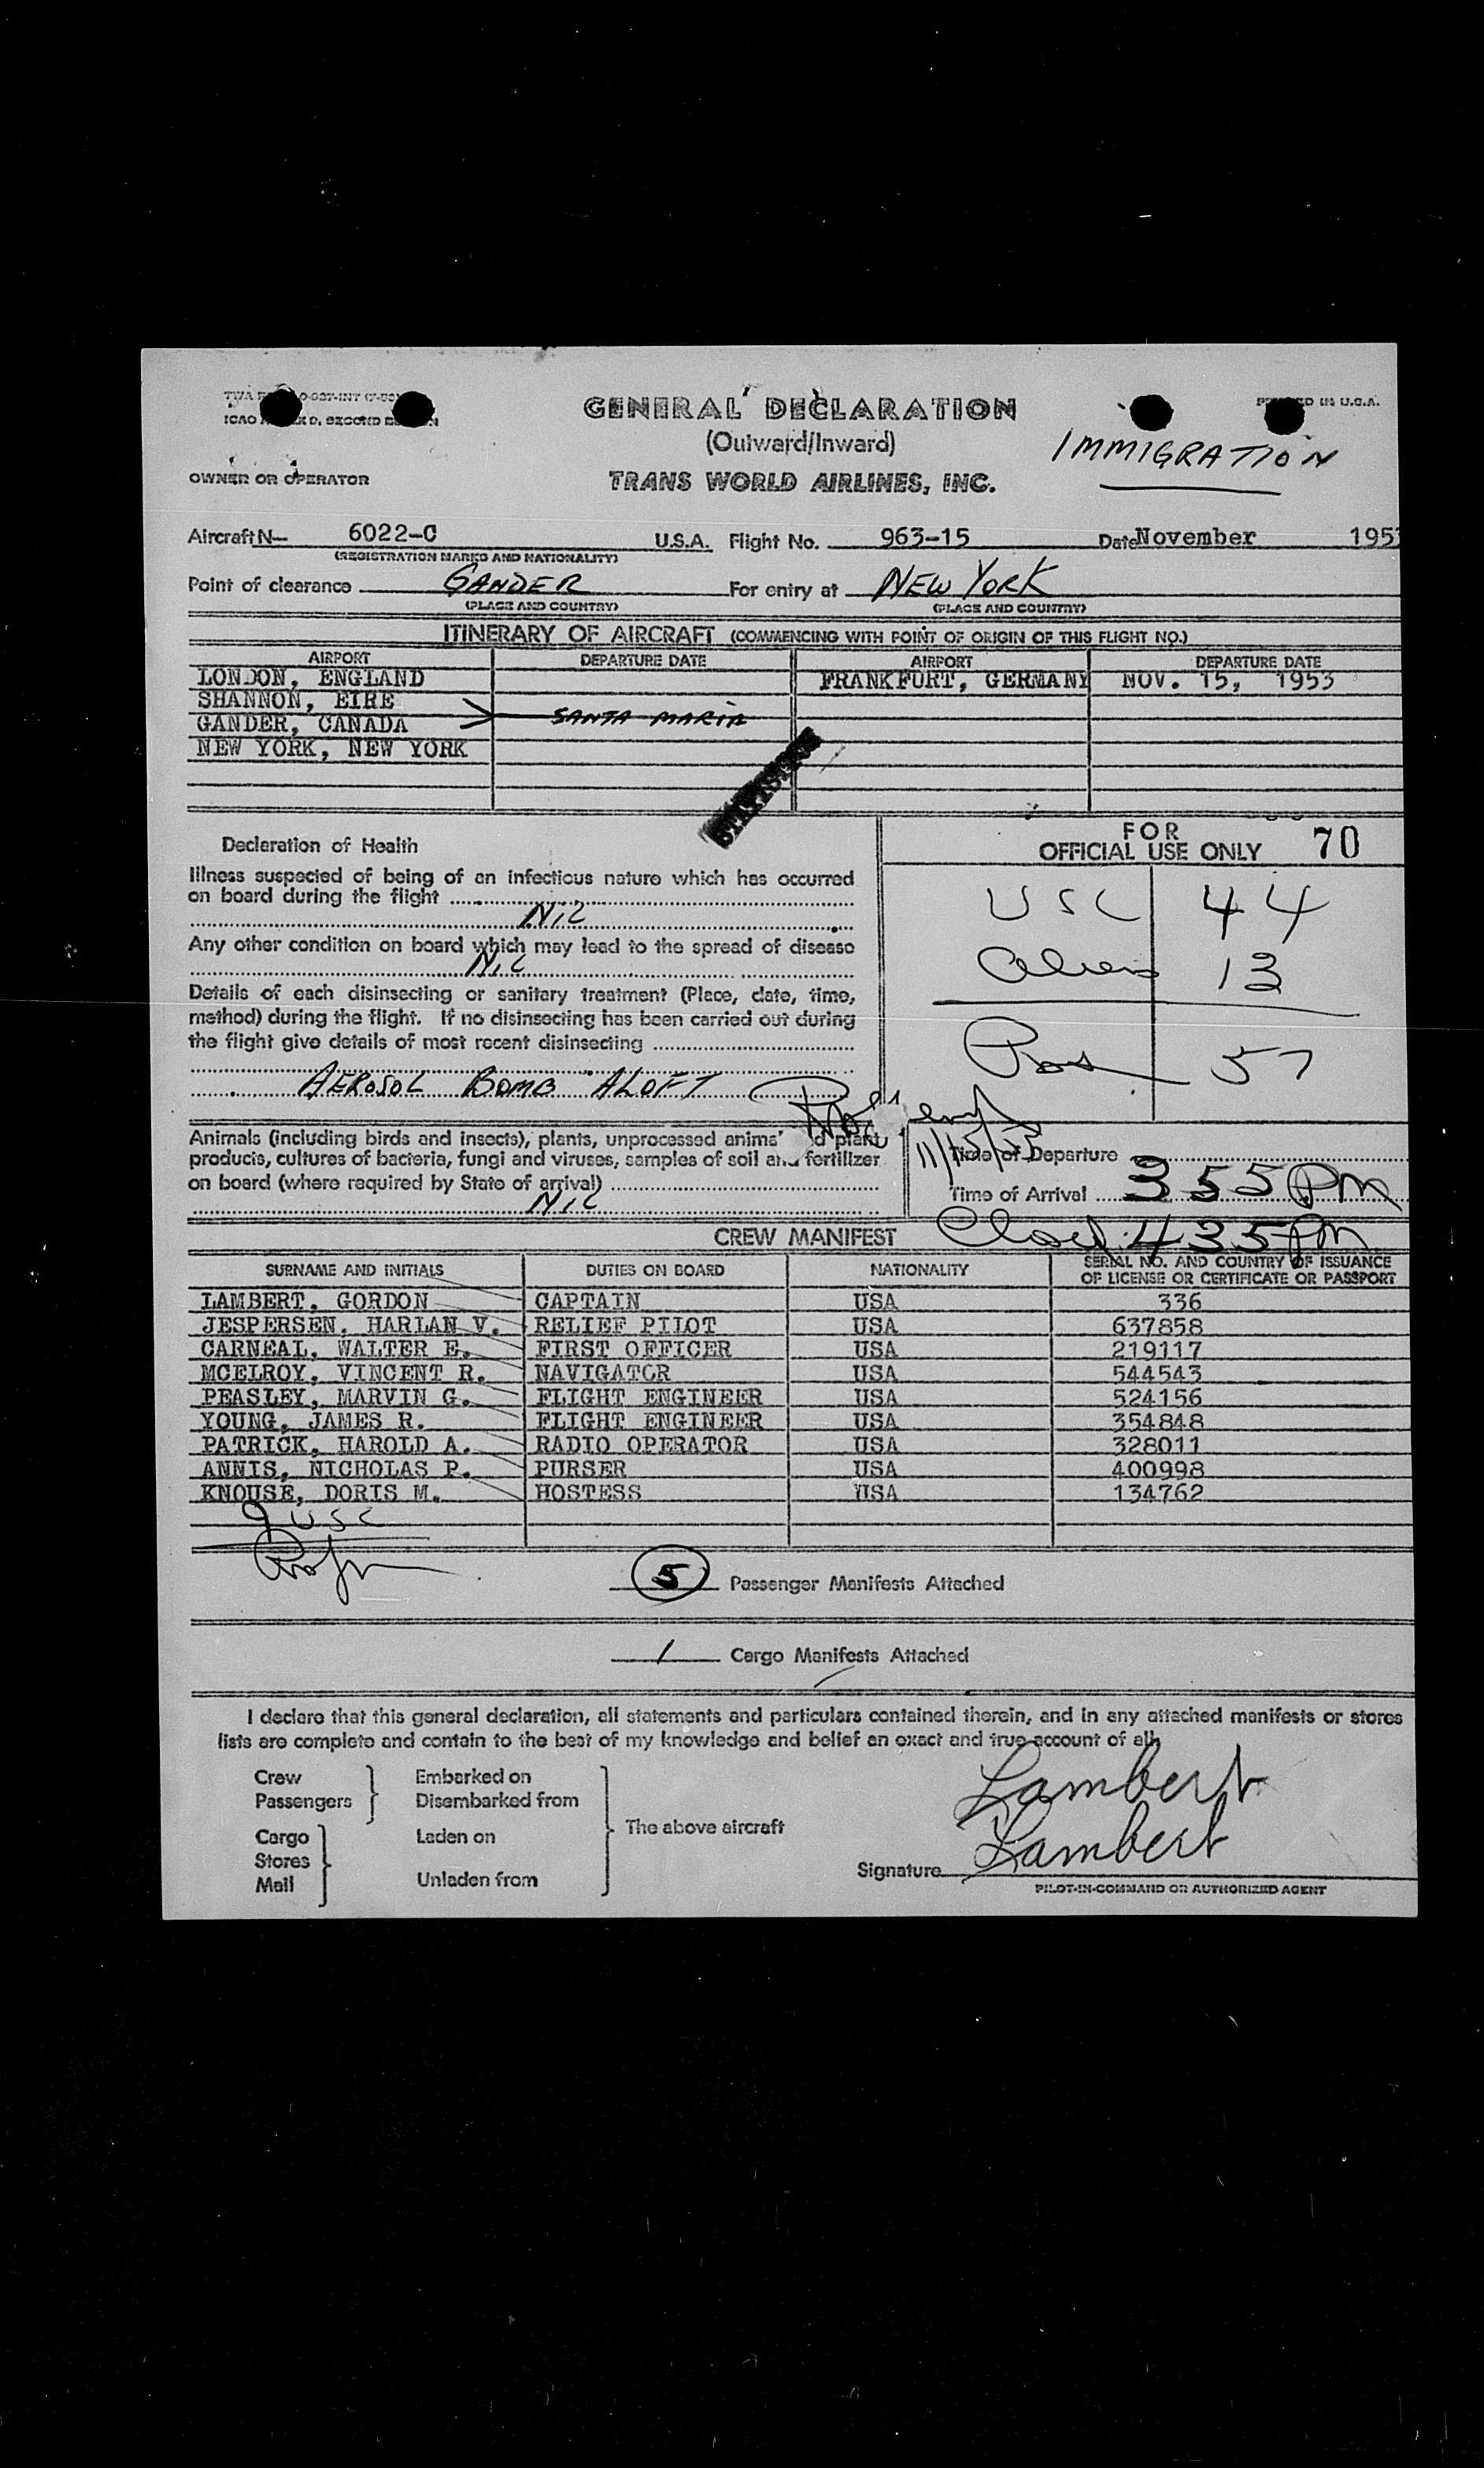 GENERAL DECLARATION
(Outward/Inward)
PRINTED IN U.S.A.
IMMIGRATION
OWNER OR OPERATOR
TRANS WORLD AIRLINES, INC.
Aircraft N— 6022-C U.S.A. Flight No. 963-15 Date November 1953
(REGISTRATION MARKS AND NATIONALITY)
Point of clearance GANDER For entry at NEW YORK
(PLACE AND COUNTRY) (PLACE AND COUNTRY)
ITINERARY OF AIRCRAFT (COMMENCING WITH POINT OF ORIGIN OF THIS FLIGHT NO.)
AIRPORT DEPARTURE DATE AIRPORT DEPARTURE DATE
LONDON, ENGLAND FRANKFURT, GERMANY NOV. 15, 1953
SHANNON, EIRE
GANDER, CANADA SANTA MARIA
NEW YORK, NEW YORK
FOR
OFFICIAL USE ONLY 70
USC 44
Aliens 13
Pass 57
Declaration of Health
Illness suspected of being of an infectious nature which has occurred
on board during the flight
NIL
Any other condition on board which may lead to the spread of disease
NIL
Details of each disinsecting or sanitary treatment (Place, date, time,
method) during the flight. If no disinsecting has been carried out during
the flight give details of most recent disinsecting
AEROSOL BOMB ALOFT
Animals (including birds and insects), plants, unprocessed animal and plant
products, cultures of bacteria, fungi and viruses, samples of soil and fertilizer
on board (where required by State of arrival)
NIL
11/15/53
Time of Departure
Time of Arrival 355 PM
Closed 435 PM
CREW MANIFEST
SURNAME AND INITIALS DUTIES ON BOARD NATIONALITY SERIAL NO. AND COUNTRY OF ISSUANCE
OF LICENSE OR CERTIFICATE OR PASSPORT
LAMBERT, GORDON CAPTAIN USA 336
JESPERSEN, HARLAN V. RELIEF PILOT USA 637858
CARNEAL, WALTER E. FIRST OFFICER USA 219117
MCELROY, VINCENT R. NAVIGATOR USA 544543
PEASLEY, MARVIN G. FLIGHT ENGINEER USA 524156
YOUNG, JAMES R. FLIGHT ENGINEER USA 354848
PATRICK, HAROLD A. RADIO OPERATOR USA 328011
ANNIS, NICHOLAS P. PURSER USA 400998
KNOUSE, DORIS M. HOSTESS USA 134762
9 USC
5 Passenger Manifests Attached
1 Cargo Manifests Attached
I declare that this general declaration, all statements and particulars contained therein, and in any attached manifests or stores
lists are complete and contain to the best of my knowledge and belief an exact and true account of all
Crew
Passengers
Embarked on
Disembarked from
Cargo
Stores
Mail
Laden on
Unladen from
The above aircraft
Lambert
Signature Lambert
PILOT-IN-COMMAND OR AUTHORIZED AGENT